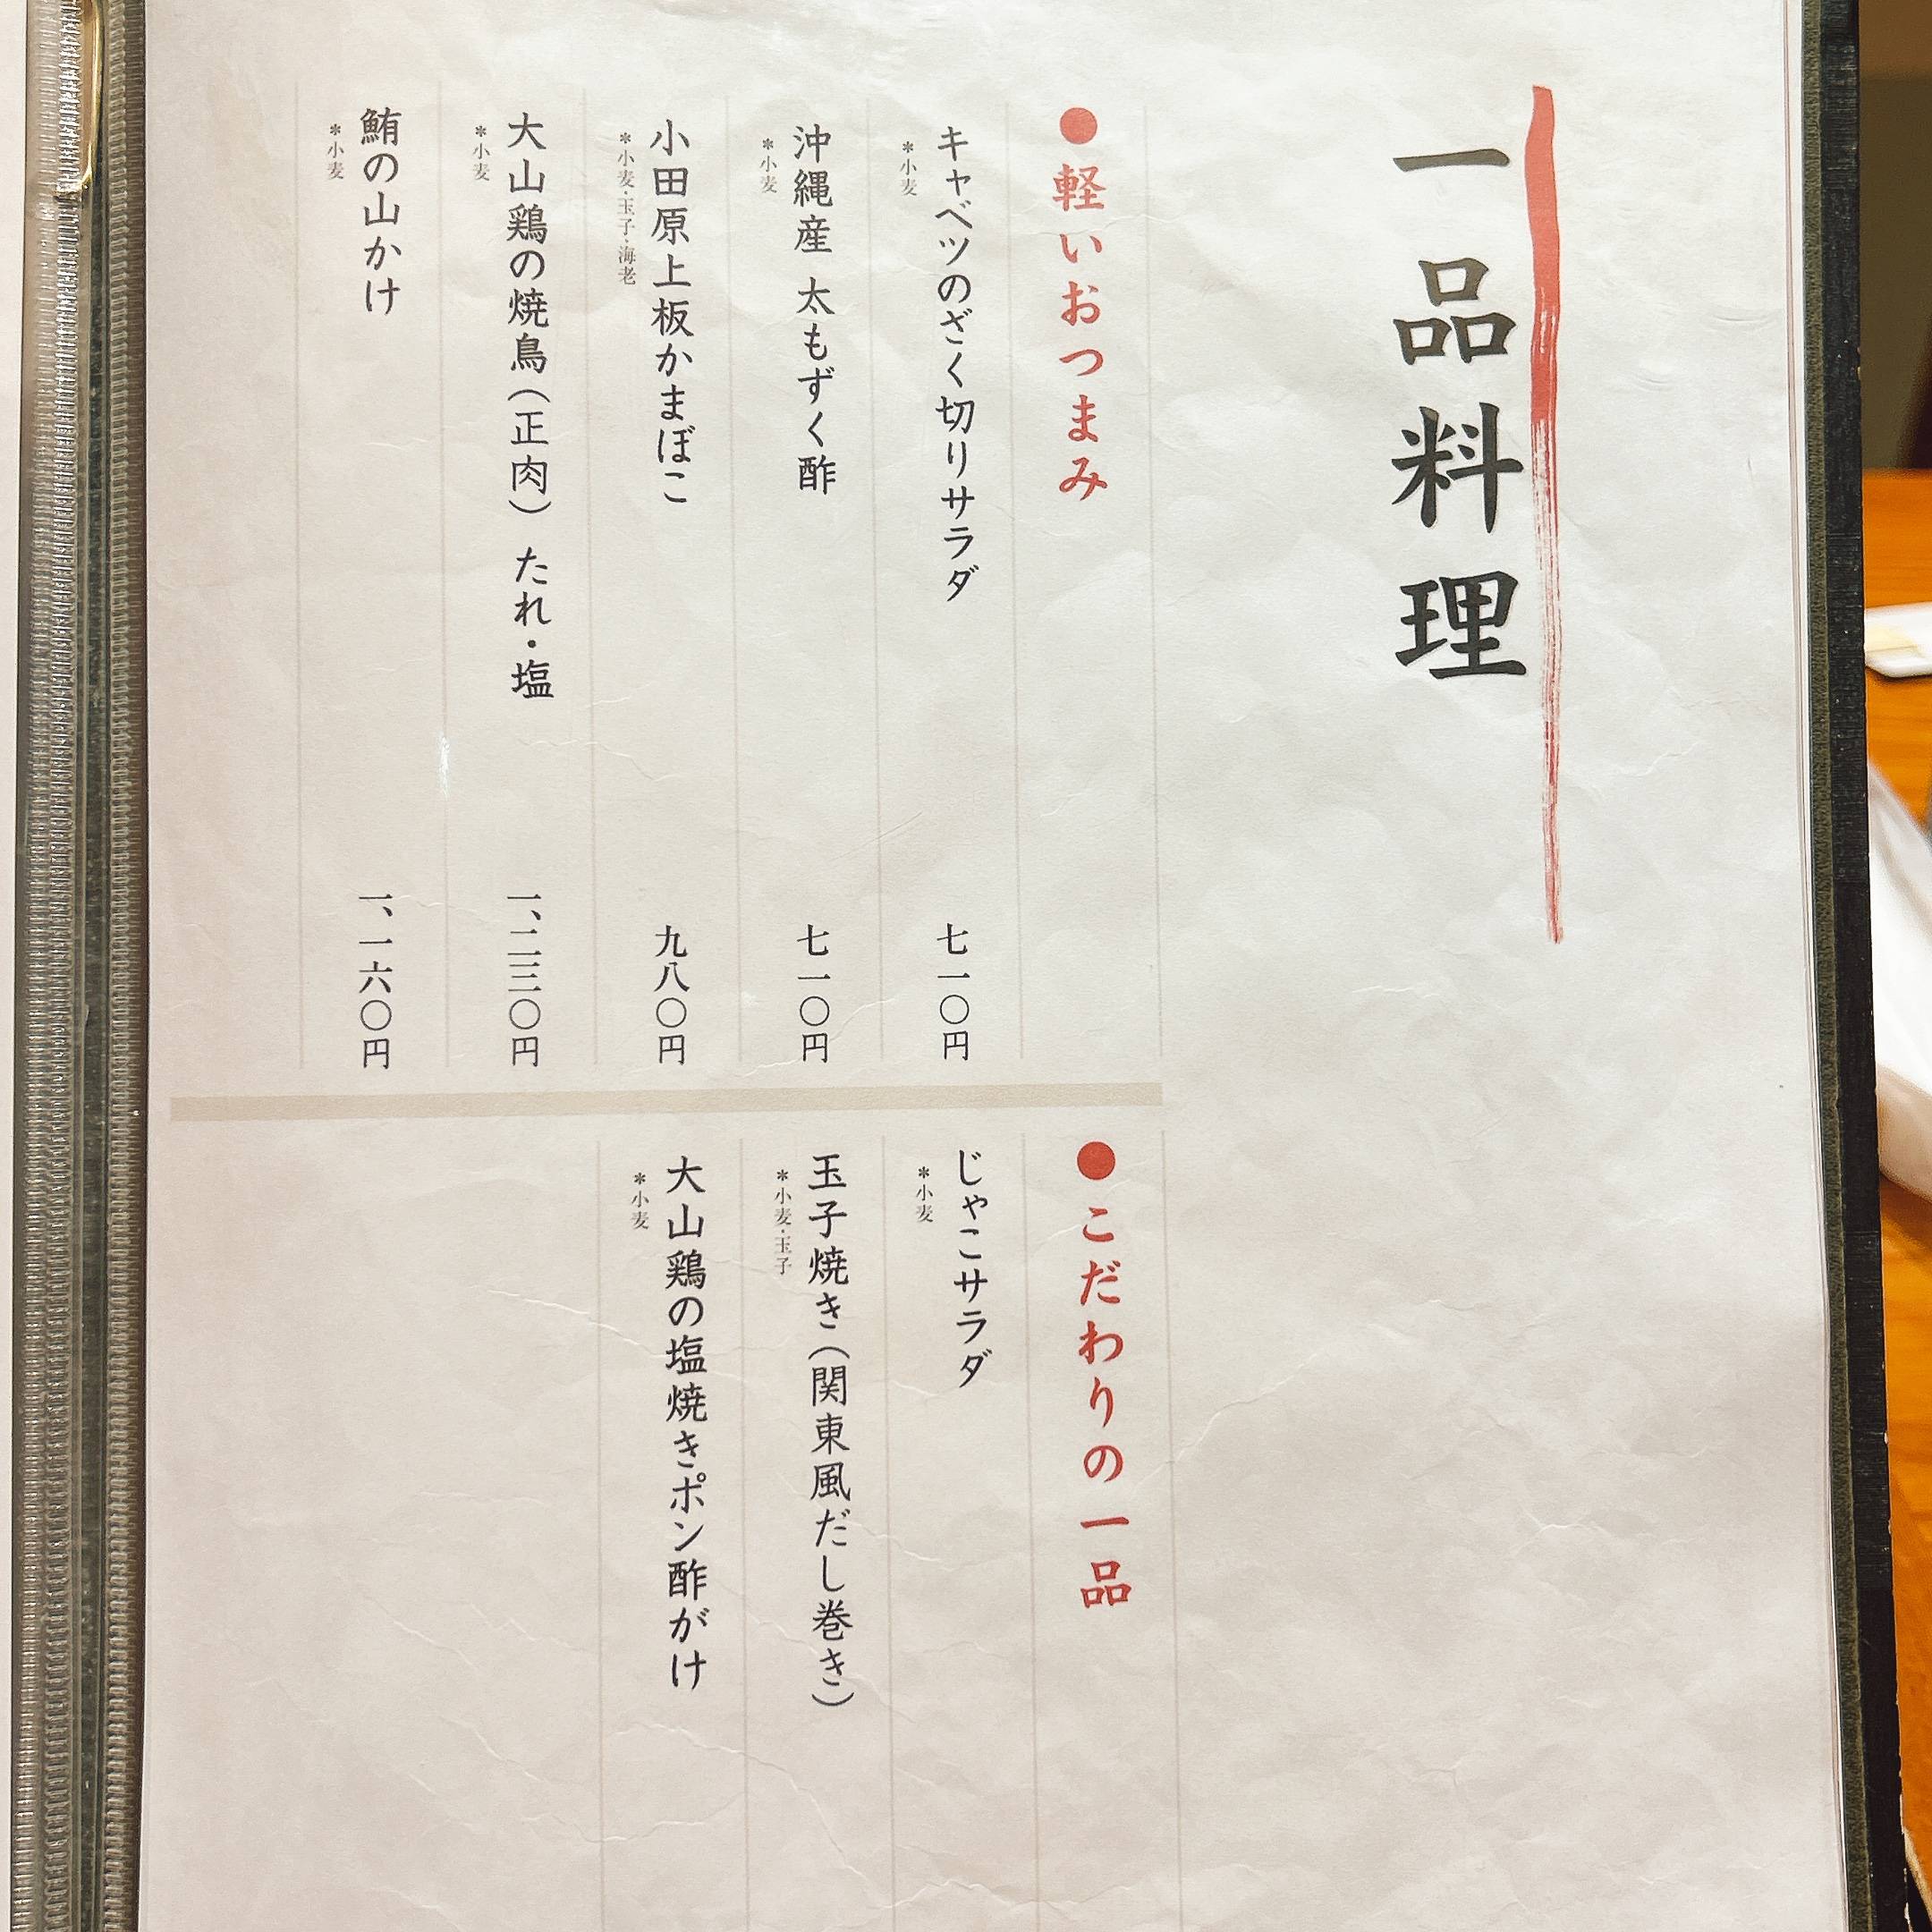 一品料理
●軽いおつまみ
キャベツのざく切りサラダ 七一〇円
*小麦
沖縄産 太もずく酢 七一〇円
*小麦
小田原上板かまぼこ 九八〇円
*小麦・玉子・海老
大山鶏の焼鳥(正肉) たれ・塩 一、二三〇円
*小麦
鮪の山かけ 一、一六〇円
*小麦
●こだわりの一品
じゃこサラダ
*小麦
玉子焼き(関東風だし巻き)
*小麦・玉子
大山鶏の塩焼きポン酢がけ
*小麦